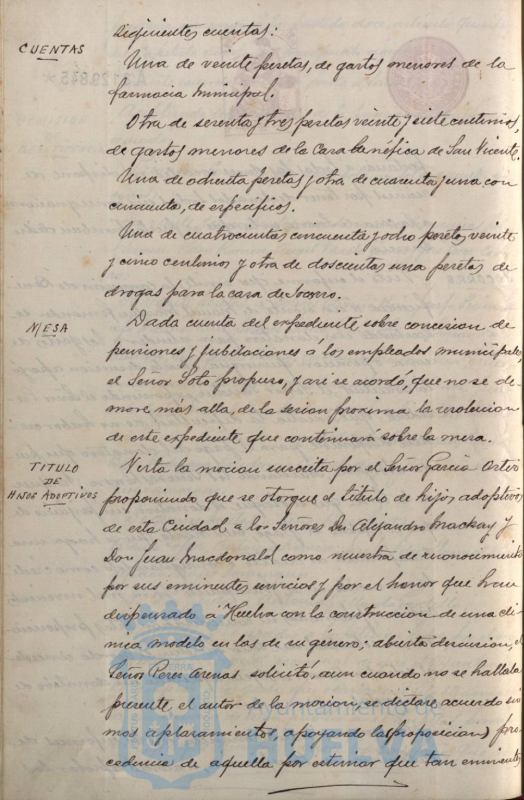 siguientes cuentas:
CUENTAS
Una de veinte pesetas, de gastos menores de la
farmacia municipal.
Otra de setenta y tres pesetas veinte y siete centimos,
de gastos menores de la Casa benéfica de San Vicente.
Una de ochenta pesetas y otra de cuarenta y una con
cincuenta, de específicos.
Una de cuatrocientas cincuenta y ocho pesetas veinte
y cinco centimos y otra de doscientas una pesetas de
drogas para la casa de Socorro.
MESA
Dada cuenta del expediente sobre concesion de
pensiones y jubilaciones á los empleados municipales,
el Señor Soto propuso, y asi se acordó, que no se de-
more, más alla, de la sesion proxima la resolucion
de este expediente que continuará sobre la mesa.
TITULO
DE
HIJOS ADOPTIVOS
Vista la mocion suscrita por el Señor Garcia Ortiz
proponiendo que se otorgue el titulo de hijos adoptivos
de esta Ciudad a los Señores Dn Alejandro Mackay y
Don Juan Macdonald como muestra de reconocimiento
por sus eminentes servicios y por el honor que han
dispensado a Huelva con la construccion de una cli-
nica modelo en las de su género; abierta discusion, el
Señor Perez Arenas solicitó, aun cuando no se hallaba
presente el autor de la mocion, se dictare acuerdo sin
mas aplazamientos, apoyando la (proposicion) pro-
cedencia de aquella por estimar que tan eminentes
Ayuntamiento de
HUELVA